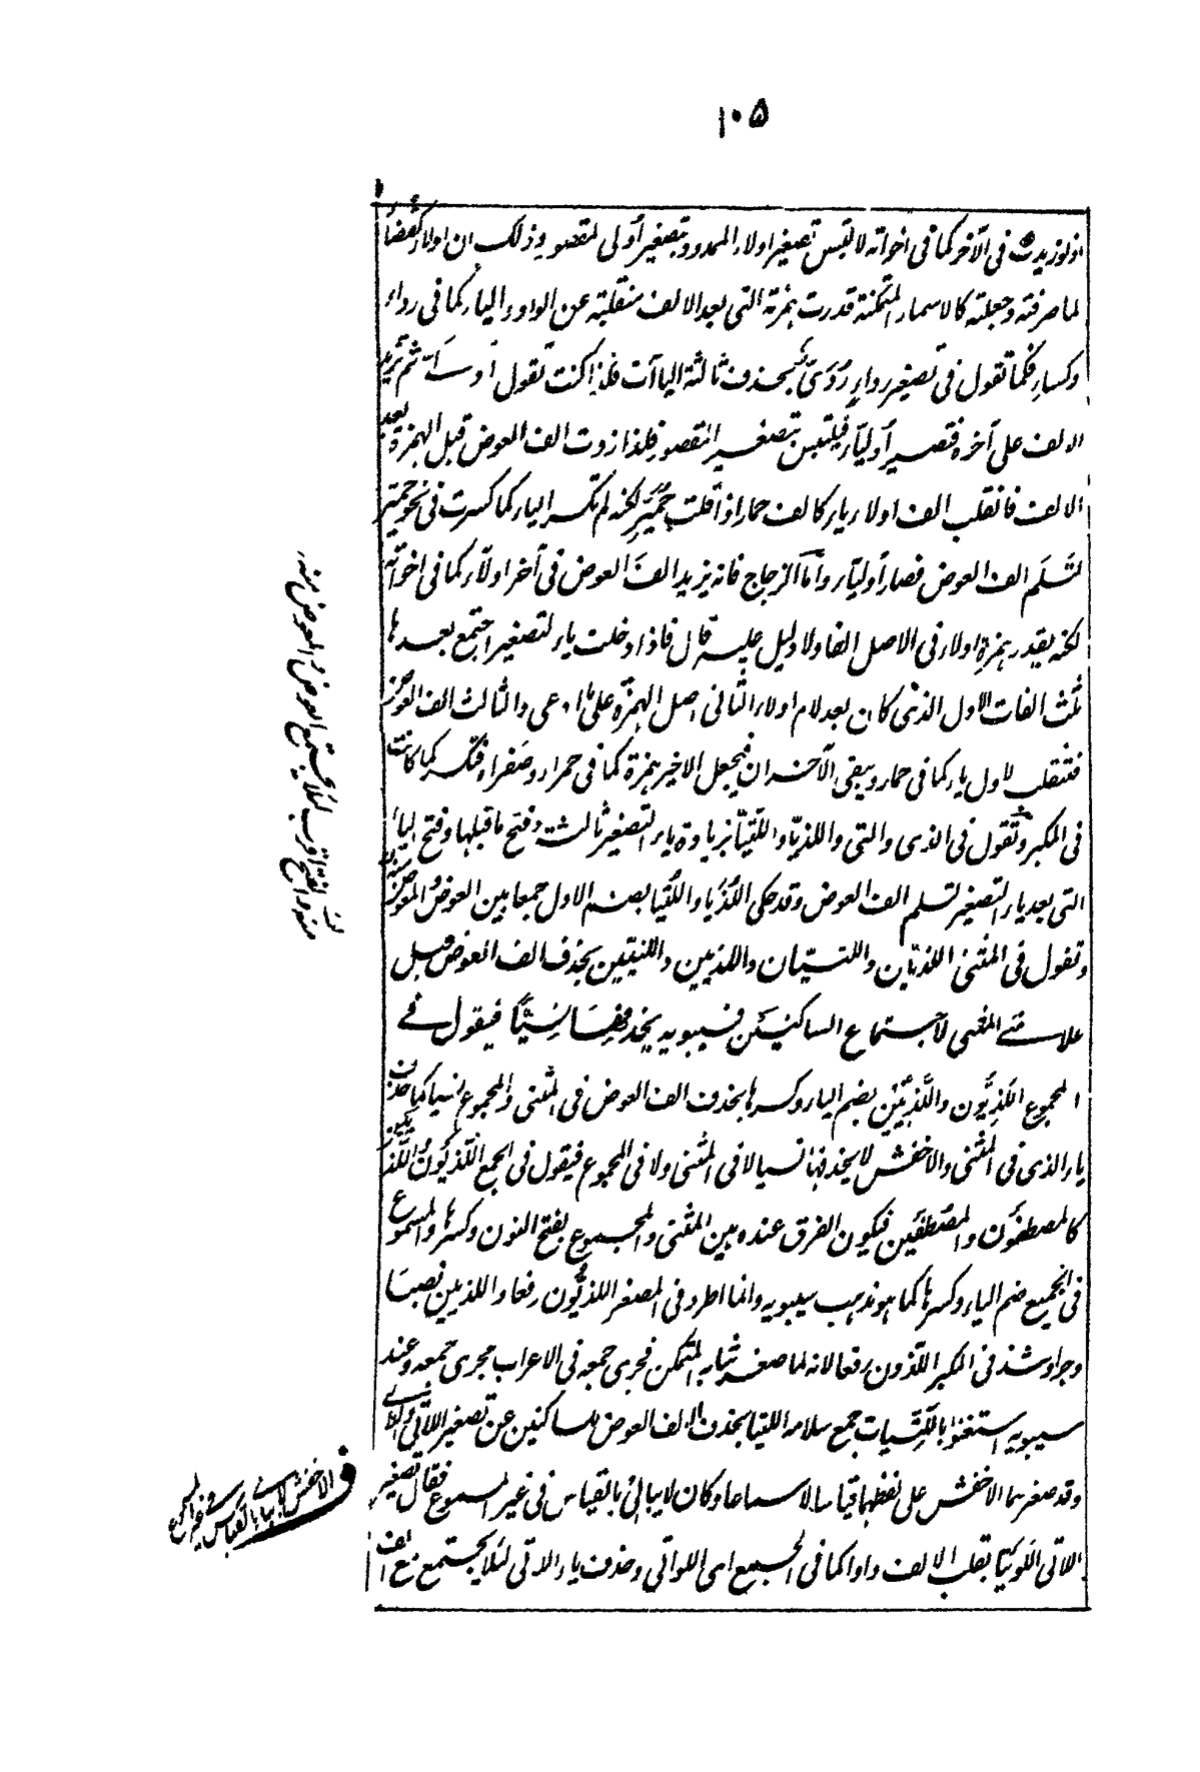 ١٠٥
اذ لو زيدت فى الآخر كما فى اخواته لالتبس تصغير اولاء الممدود بتصغير أولى المقصور وذلك ان اولاء كقضاء
لما صرفته وجعلته كالاسماء المتمكنة قدرت همزته التى بعد الالف منقلبة عن الواو والياء كما فى رداء
وكساء فكما تقول فى تصغير رداء رُدَىّ بحذف ثالثة الياآت فلذا كنت تقول ثم تزيد
الالف على آخره فتصير أوليّا فيلتبس بتصغير المقصور فلذا زدت الف العوض قبل الهمزة بعد
الالف فانقلب الف اولاء ياء كالف حمار اذا قلت حُمَيِّر لكنه لم تكسر الياء كما كسرت فى نحو حمير
لتسلم الف العوض فصار أوليّاء وأما الزجاج فانه يزيد الف العوض فى آخر اولاء كما فى اخواته
لكنه يقدر همزة اولاء فى الاصل الفا ولا دليل عليه قال فاذا دخلت ياء التصغير اجتمع بعدها
ثلث الفات الاول الذى كان بعد لام اولاء الثانى اصل الهمزة على ما ادعى والثالث الف العوض
فتنقلب الاول ياء كما فى حمار ويبقى الآخران فيجعل الاخير همزة كما فى حمراء وصفراء فتكسر كما كانت
فى المكبر وتقول فى الذى والتى واللذيّا واللتيّا بزيادة ياء التصغير ثالثة وفتح ما قبلها وفتح الياء
التى بعد ياء التصغير لتسلم الف العوض وقد حكى اللُذَيّا واللُتَيّا بضم الاول جمعا بين العوض والمعوض منه
وتقول فى المثنى اللذيّان واللتيّان واللذيين واللتيين بحذف الف العوض قبل
علامتى المثنى لاجتماع الساكنين فسيبويه يحذفها نسيًّا فيقول فى
المجموع اللَذِيُّون واللَّذِيِّين بضم الياء وكسرها بحذف الف العوض فى المثنى والمجموع نسيا كما حذف
ياء الذى فى المثنى والاخفش لا يحذفها نسيا لا فى المثنى ولا فى المجموع فيقول فى الجمع اللَّذَيَّون واللَّذَيَّين
كالمصطفَون والمصطفَين فيكون الفرق عنده بين المثنى والمجموع بفتح النون وكسرها والمسموع
فى الجميع ضم الياء وكسرها كما هو مذهب سيبويه وانما اطرد فى المصغر اللذيّون رفعا واللذيين نصبًا
وجرا وشذ فى المكبر اللَّذون رفعا لانه لما صغر شابه المتمكن فجرى جمعه فى الاعراب مجرى جمعه وعند
سيبويه استغنوا باللَّتَيّات جمع سلامة اللتيّا بحذف الف العوض للساكنين عن تصغير اللاتى واللائى
وقد صغرهما الاخفش على لفظهما قياسا لا سماعا وكان لا يبالى بالقياس فى غير المسموع فقال تصغير
اللاتى اللَوَيْتَا بقلب الالف واوا كما فى الجمع اى اللواتى وحذف ياء اللاتى لئلا يجتمع مع الف